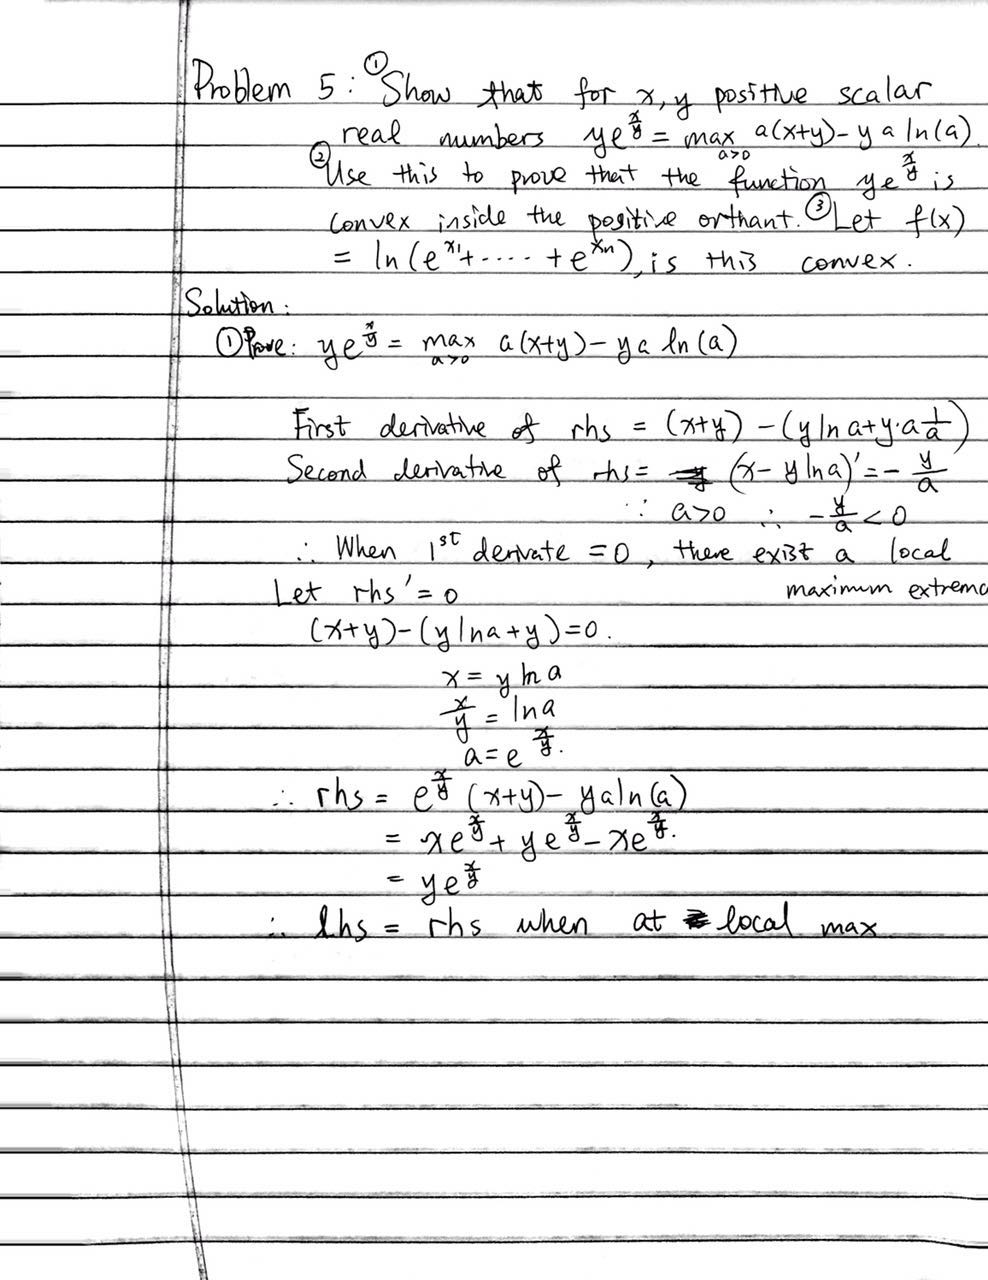 Problem 5: ① Show that for x, y positive scalar
real numbers ye^{x/y} = max_{a>0} a(x+y) - y a ln(a).
② Use this to prove that the function ye^{x/y} is
convex inside the positive orthant. ③ Let f(x)
= ln(e^{x_1}+.....+e^{x_n}), is this convex.
Solution:
① Prove: ye^{x/y} = max_{a>0} a(x+y) - y a ln(a)
First derivative of rhs = (x+y) - (y ln a + y·a 1/a)
Second derivative of rhs = (x - y ln a)' = - y/a
∵ a>0 ∴ - y/a < 0
∴ When 1st derivate = 0, there exist a local
maximum extrema
Let rhs' = 0
(x+y) - (y ln a + y) = 0.
x = y ln a
x/y = ln a
a = e^{x/y}.
∴ rhs = e^{x/y} (x+y) - y a ln(a)
= xe^{x/y} + ye^{x/y} - xe^{x/y}.
= ye^{x/y}
∴ lhs = rhs when at local max